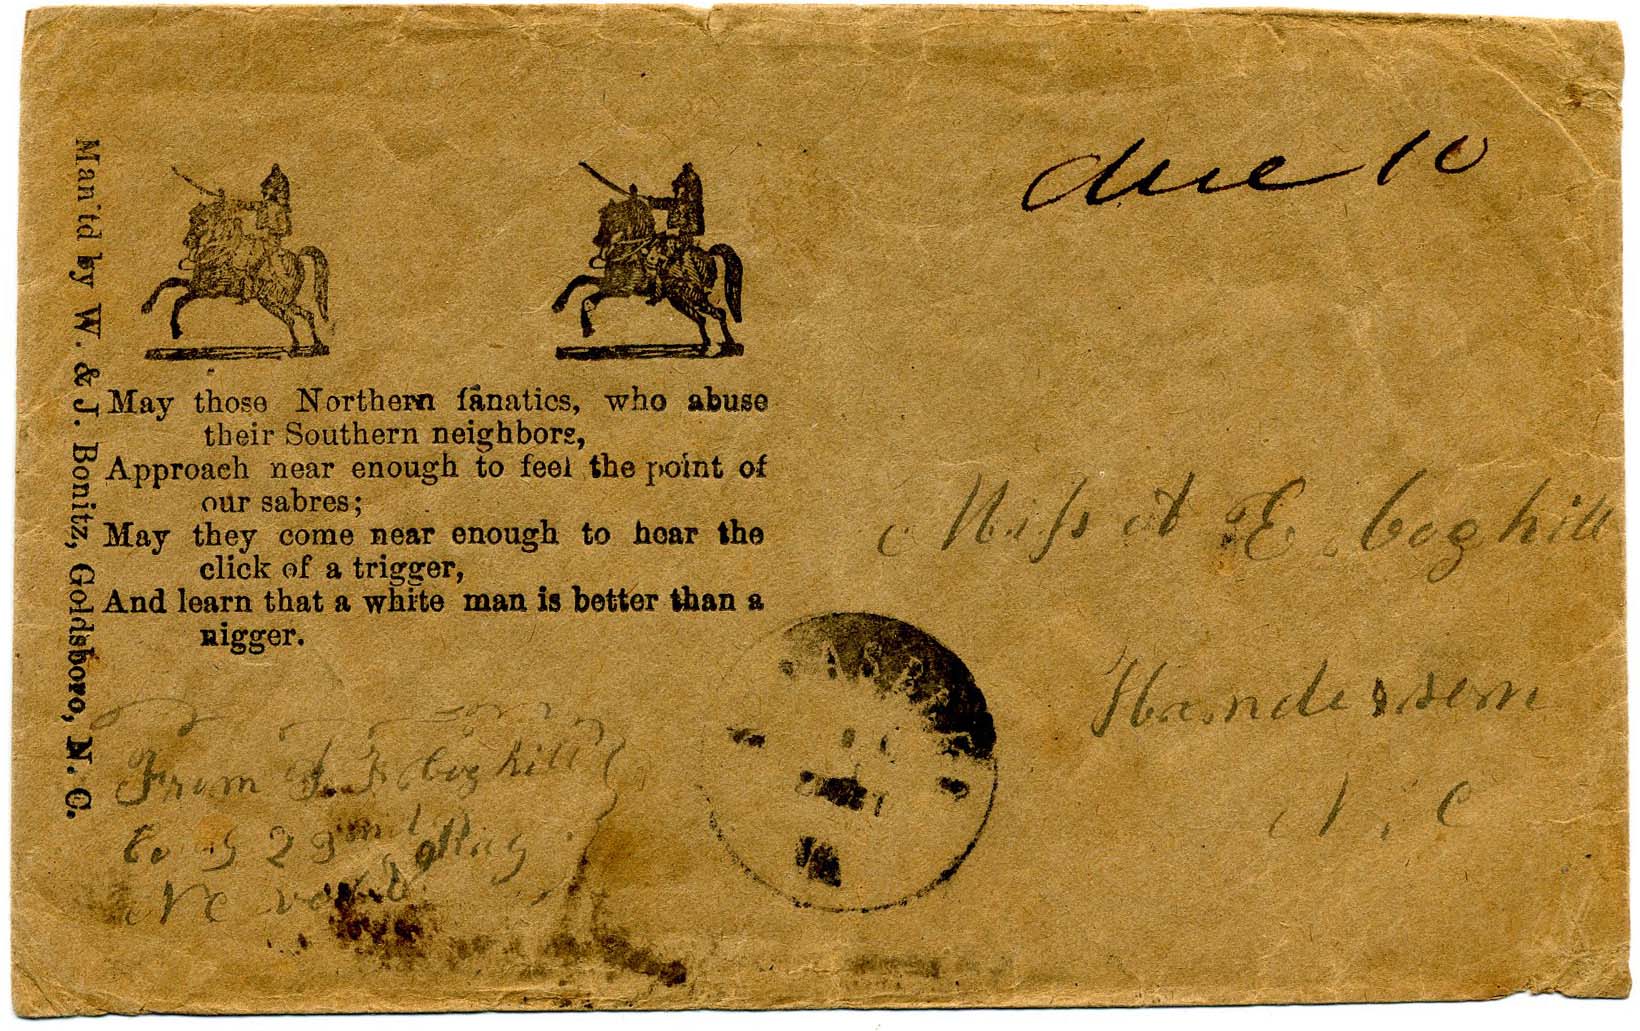 due 10
Man'td by W. & J. Bonitz, Goldsboro, N. C.
May those Northern fanatics, who abuse
their Southern neighbors,
Approach near enough to feel the point of
our sabres;
May they come near enough to hear the
click of a trigger,
And learn that a white man is better than a
nigger.
Miss A E Coghill
Handerson
N. C
From J. F Coghill
Co G 23 Reg
N C vol